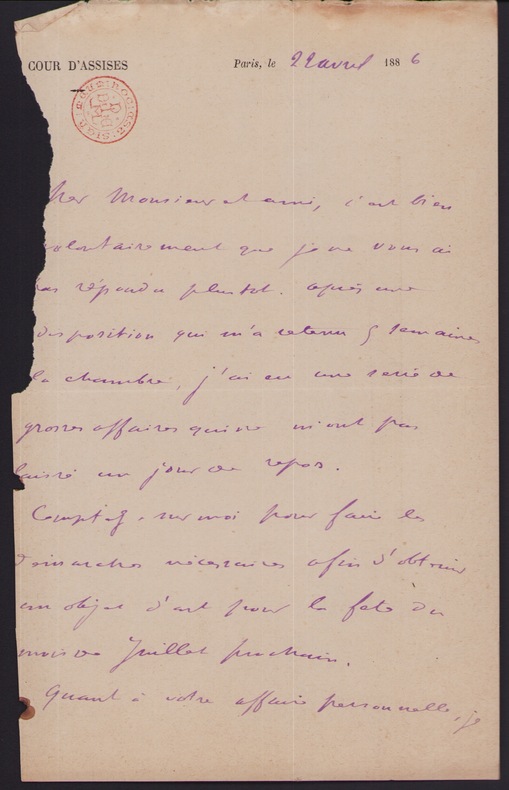 COUR D'ASSISES Paris, le 22 avril 1886
her Monsieur et ami, c'est bien
volontairement que je ne vous ai
pas répondu plustot. après une
disposition qui m'a retenu 5 semaines
la chambre, j'ai eu une serie de
grosses affaires qui ne m'ont pas
laissé un jour de repos.
Comptez sur moi pour faire les
démarches nécessaires afin d'obtenir
un objet d'art pour la fete du
mois de Juillet prochain.
Quant à votre affaire personnelle, je